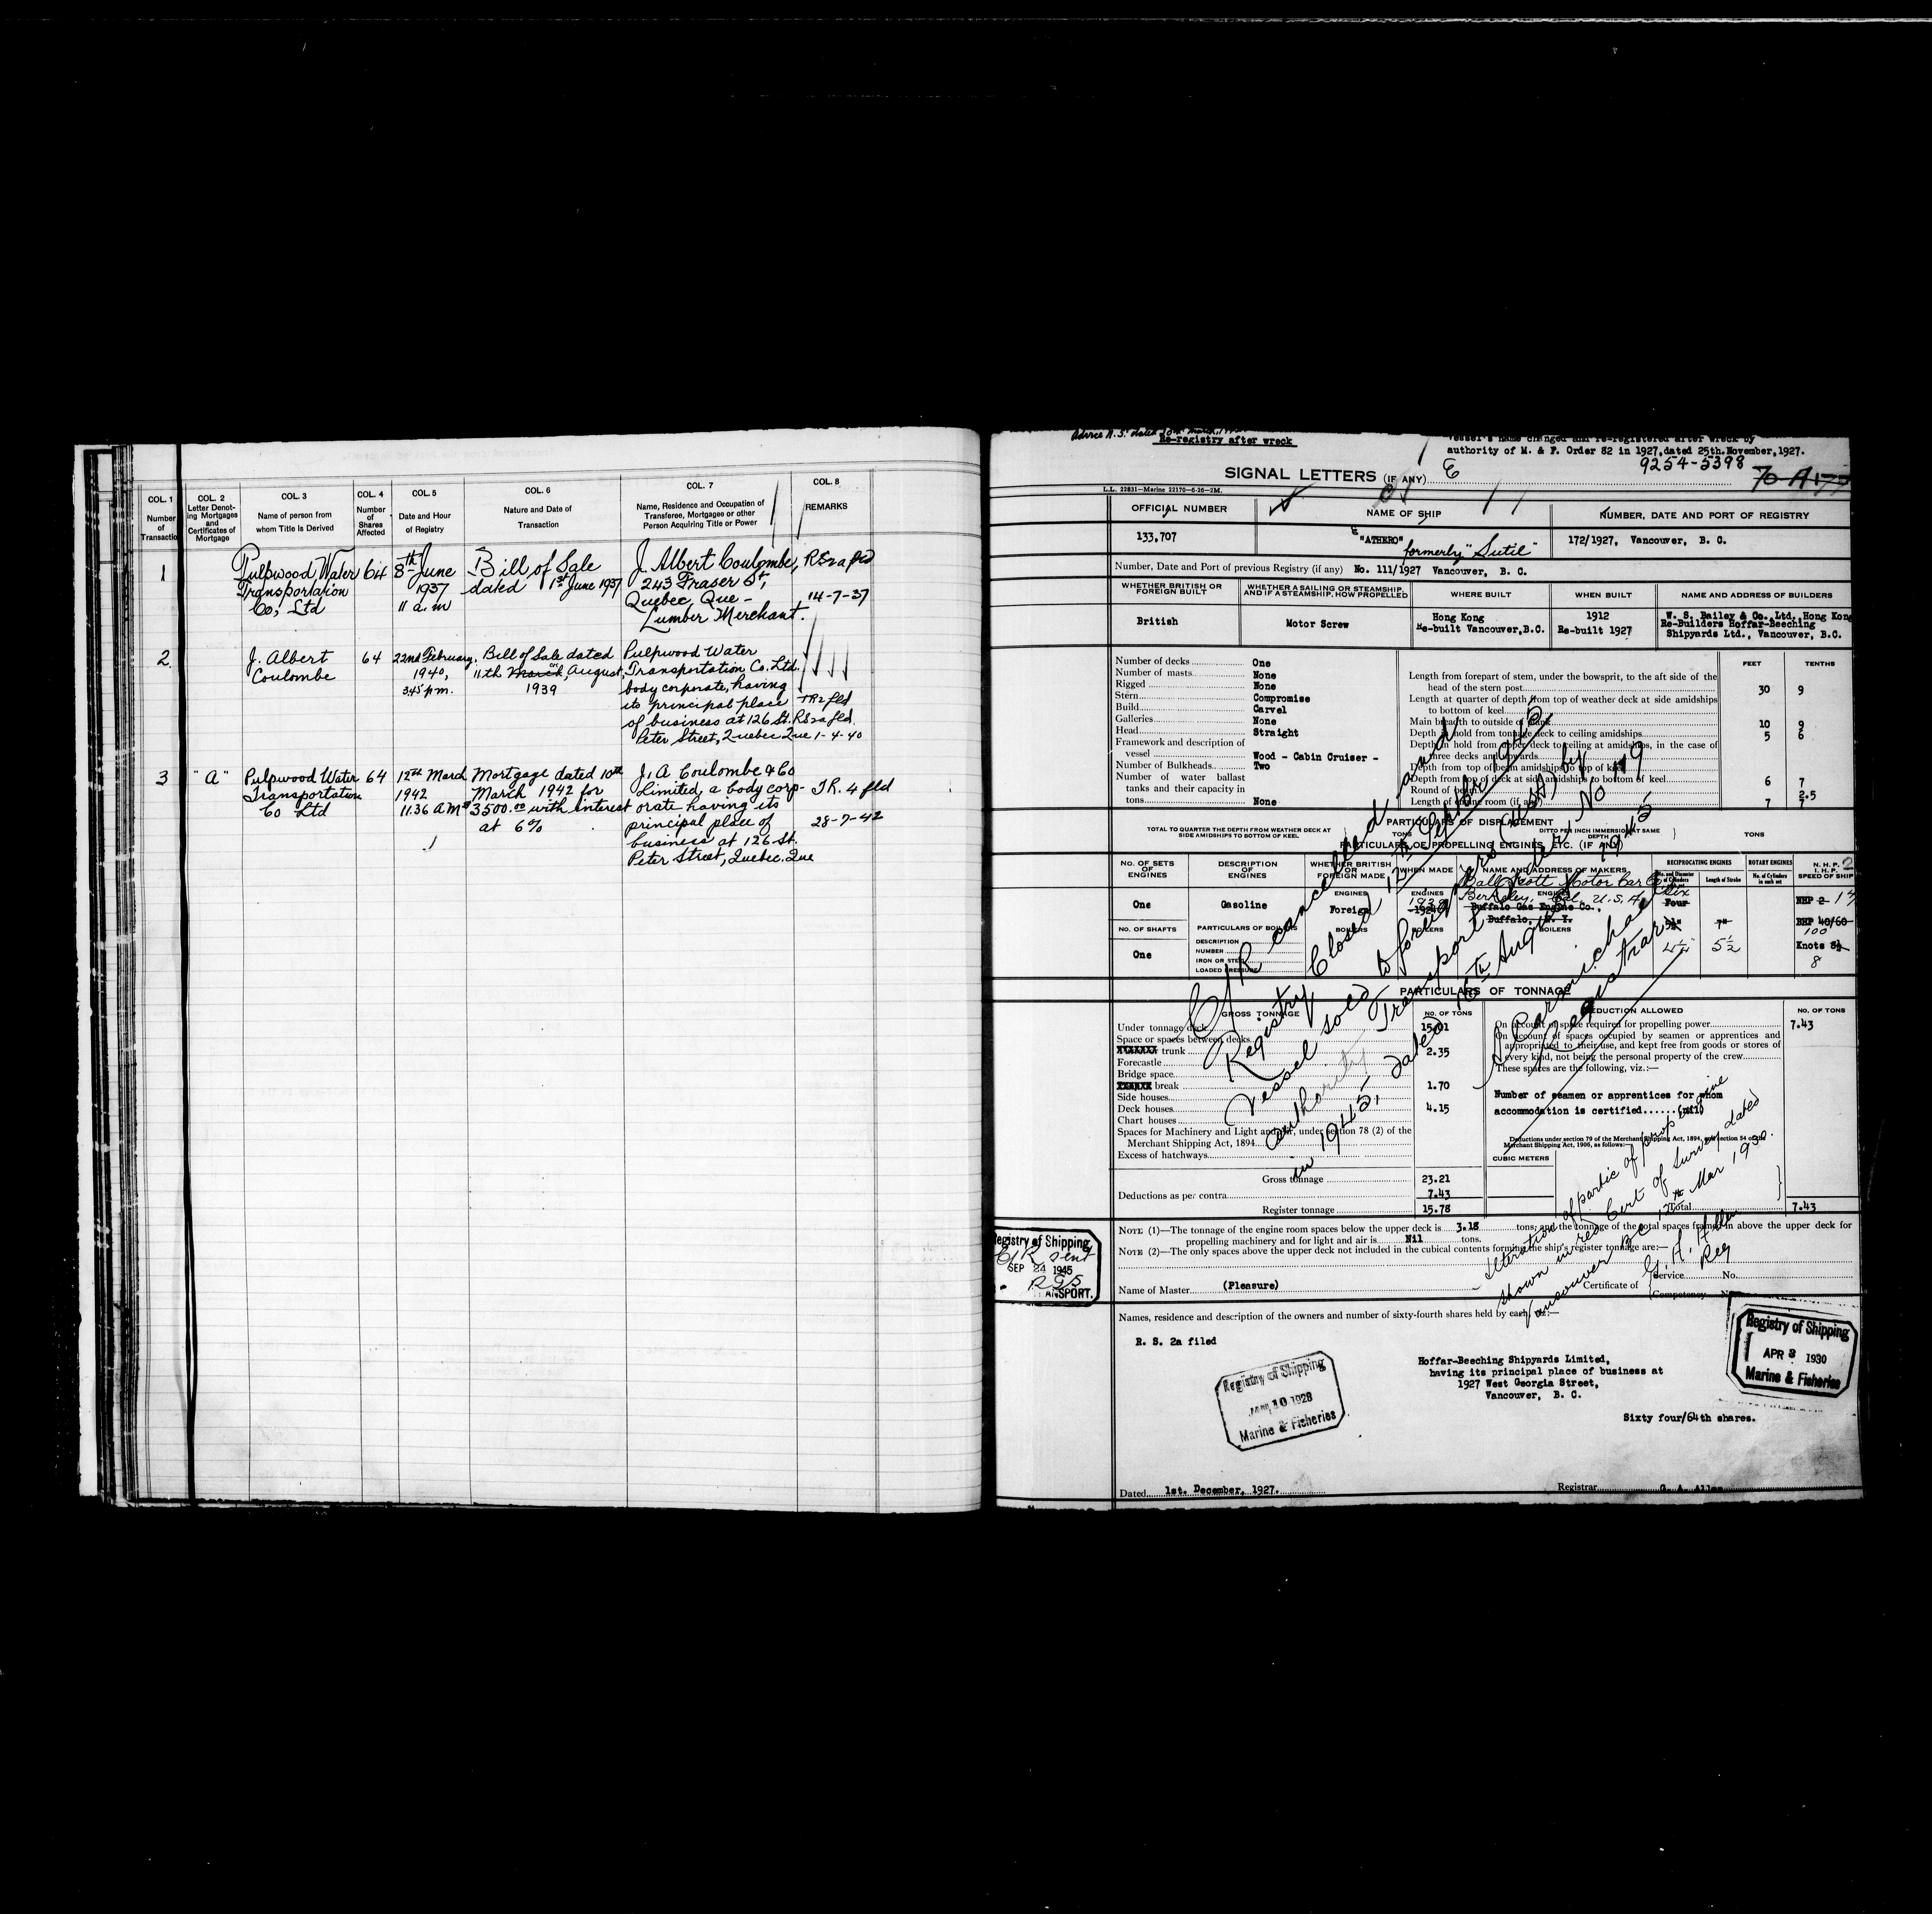 COL. 1
Number
of
Transactio
COL. 2
Letter Denot-
ing Mortgages
and
Certificates of
Mortgage
COL. 3
Name of person from
whom Title Is Derived
COL. 4
Number
of
Shares
Affected
COL. 5
Date and Hour
of Registry
COL. 6
Nature and Date of
Transaction
COL. 7
Name, Residence and Occupation of
Transferee, Mortgagee or other
Person Acquiring Title or Power
COL. 8
REMARKS
1
Pulpwood Water
Transportation
Co, Ltd
64
8th June
1937
11 a.m
Bill of Sale
dated 1st June 1937
J. Albert Coulombe,
243 Fraser St,
Quebec, Que -
Lumber Merchant.
14-7-37
2
J. Albert
Coulombe
64
22nd February,
1940,
3.45 p.m.
Bill of Sale dated
11th March August,
1939
Pulpwood Water
Transportation Co. Ltd.
body corporate, having
its principal place
of business at 126 St.
Peter Street, Quebec Que
TR2 fld
RS2a fld.
1-4-40
3
"A"
Pulpwood Water
Transportation
Co Ltd
64
12th March
1942
11.36 A.M
Mortgage dated 10th
March 1942 for
$3500.00 with interest
at 6%
J. A Coulombe & Co
Limited, a body corp-
orate having its
principal place of
business at 126 St.
Peter Street, Quebec. Que
TR. 4 fld
28-7-42
Re-registry after wreck
Vessel's name changed and re-registered after wreck by
authority of M. & F. Order 82 in 1927, dated 25th. November, 1927.
9254-5398
SIGNAL LETTERS (IF ANY)
L.L. 22831—Marine 22170—6-26—2M.
OFFICIAL NUMBER
NAME OF SHIP
NUMBER, DATE AND PORT OF REGISTRY
133,707
"ATHERO"
formerly "Sutil"
172/1927, Vancouver, B. C.
Number, Date and Port of previous Registry (if any) No. 111/1927 Vancouver, B. C.
WHETHER BRITISH OR
FOREIGN BUILT
WHETHER A SAILING OR STEAMSHIP,
AND IF A STEAMSHIP, HOW PROPELLED
WHERE BUILT
WHEN BUILT
NAME AND ADDRESS OF BUILDERS
British
Motor Screw
Hong Kong
Re-built Vancouver,B.C.
1912
Re-built 1927
W. S. Bailey & Co.,Ltd, Hong Kong
Re-Builders Hoffar-Beeching
Shipyards Ltd., Vancouver, B.C.
Number of decks One
Number of masts None
Rigged None
Stern Compromise
Build Carvel
Galleries None
Head Straight
Framework and description of
vessel Wood - Cabin Cruiser -
Number of Bulkheads Two
Number of water ballast
tanks and their capacity in
tons None
FEET
TENTHS
Length from forepart of stem, under the bowsprit, to the aft side of the
head of the stern post 30 9
Length at quarter of depth from top of weather deck at side amidships
to bottom of keel
Main breadth to outside of plank 10 9
Depth in hold from tonnage deck to ceiling amidships 5 6
Depth in hold from upper deck to ceiling at amidships, in the case of
three decks and upwards
Depth from top of beam amidships to top of keel
Depth from top of deck at side amidships to bottom of keel 6 7
Round of beam 2.5
Length of engine room (if any) 7 7
PARTICULARS OF DISPLACEMENT
TOTAL TO QUARTER THE DEPTH FROM WEATHER DECK AT
SIDE AMIDSHIPS TO BOTTOM OF KEEL
TONS
DITTO PER INCH IMMERSION AT SAME
DEPTH
TONS
PARTICULARS OF PROPELLING ENGINES, ETC. (IF ANY)
NO. OF SETS
OF
ENGINES
DESCRIPTION
OF
ENGINES
WHETHER BRITISH
OR
FOREIGN MADE
WHEN MADE
NAME AND ADDRESS OF MAKERS
RECIPROCATING ENGINES
ROTARY ENGINES
No. and Diameter
of Cylinders
Length of Stroke
No. of Cylinders
in each set
N. H. P.
I. H. P.
SPEED OF SHIP
Hall Scott Motor Car Co
Berkeley, Cal, U.S.A.
One
Gasoline
ENGINES
Foreign
ENGINES
1924
ENGINES
Buffalo Gas Engine Co.,
Buffalo, N. Y.
Six
Four
NHP 2
BHP 40/60
100
NO. OF SHAFTS
PARTICULARS OF BOILERS
BOILERS
BOILERS
BOILERS
One
DESCRIPTION
NUMBER
IRON OR STEEL
LOADED PRESSURE
7"
5½
Knots
8
PARTICULARS OF TONNAGE
GROSS TONNAGE
NO. OF TONS
DEDUCTION ALLOWED
NO. OF TONS
Under tonnage deck 15.01
Space or spaces between decks
trunk 2.35
Forecastle
Bridge space
break 1.70
Side houses
Deck houses 4.15
Chart houses
Spaces for Machinery and Light and Air, under section 78 (2) of the
Merchant Shipping Act, 1894
Excess of hatchways
Gross tonnage 23.21
Deductions as per contra 7.43
Register tonnage 15.78
On account of space required for propelling power 7.43
On account of spaces occupied by seamen or apprentices and
appropriated to their use, and kept free from goods or stores of
every kind, not being the personal property of the crew
These spaces are the following, viz.:—
Number of seamen or apprentices for whom
accommodation is certified...... (nil)
Deductions under section 79 of the Merchant Shipping Act, 1894, and section 54 of the
Merchant Shipping Act, 1906, as follows:—
CUBIC METERS
Total 7.43
C/R cancelled and
Registry Closed 12th September 1945
Vessel sold to foreigners (USA) by
authority Transport Order No 119
in 1945, dated 16th August 1945
J Carmichael
Registrar
Alteration of partic of prop engine
shown in red Cert of Survey dated
Vancouver BC 12th Mar 1930.
G. A. Allen
Reg
NOTE (1)—The tonnage of the engine room spaces below the upper deck is 3.18 tons, and the tonnage of the total spaces framed in above the upper deck for
propelling machinery and for light and air is Nil tons.
NOTE (2)—The only spaces above the upper deck not included in the cubical contents forming the ship's register tonnage are:—
Registry of Shipping
C/R sent
SEP 24 1945
RGS
TRANSPORT.
Name of Master (Pleasure)
Certificate of
Service
Competency
No.
Names, residence and description of the owners and number of sixty-fourth shares held by each, viz:—
R. S. 2a filed
Registry of Shipping
10 1928
Marine & Fisheries
Hoffar-Beeching Shipyards Limited,
having its principal place of business at
1927 West Georgia Street,
Vancouver, B. C.
Registry of Shipping
APR 3 1930
Marine & Fisheries
Sixty four/64th shares.
Dated 1st. December, 1927.
Registrar G. A. Allen